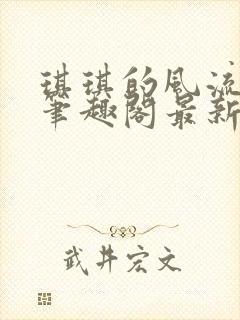 琪琪的风流
笔趣阁最新
武井宏文